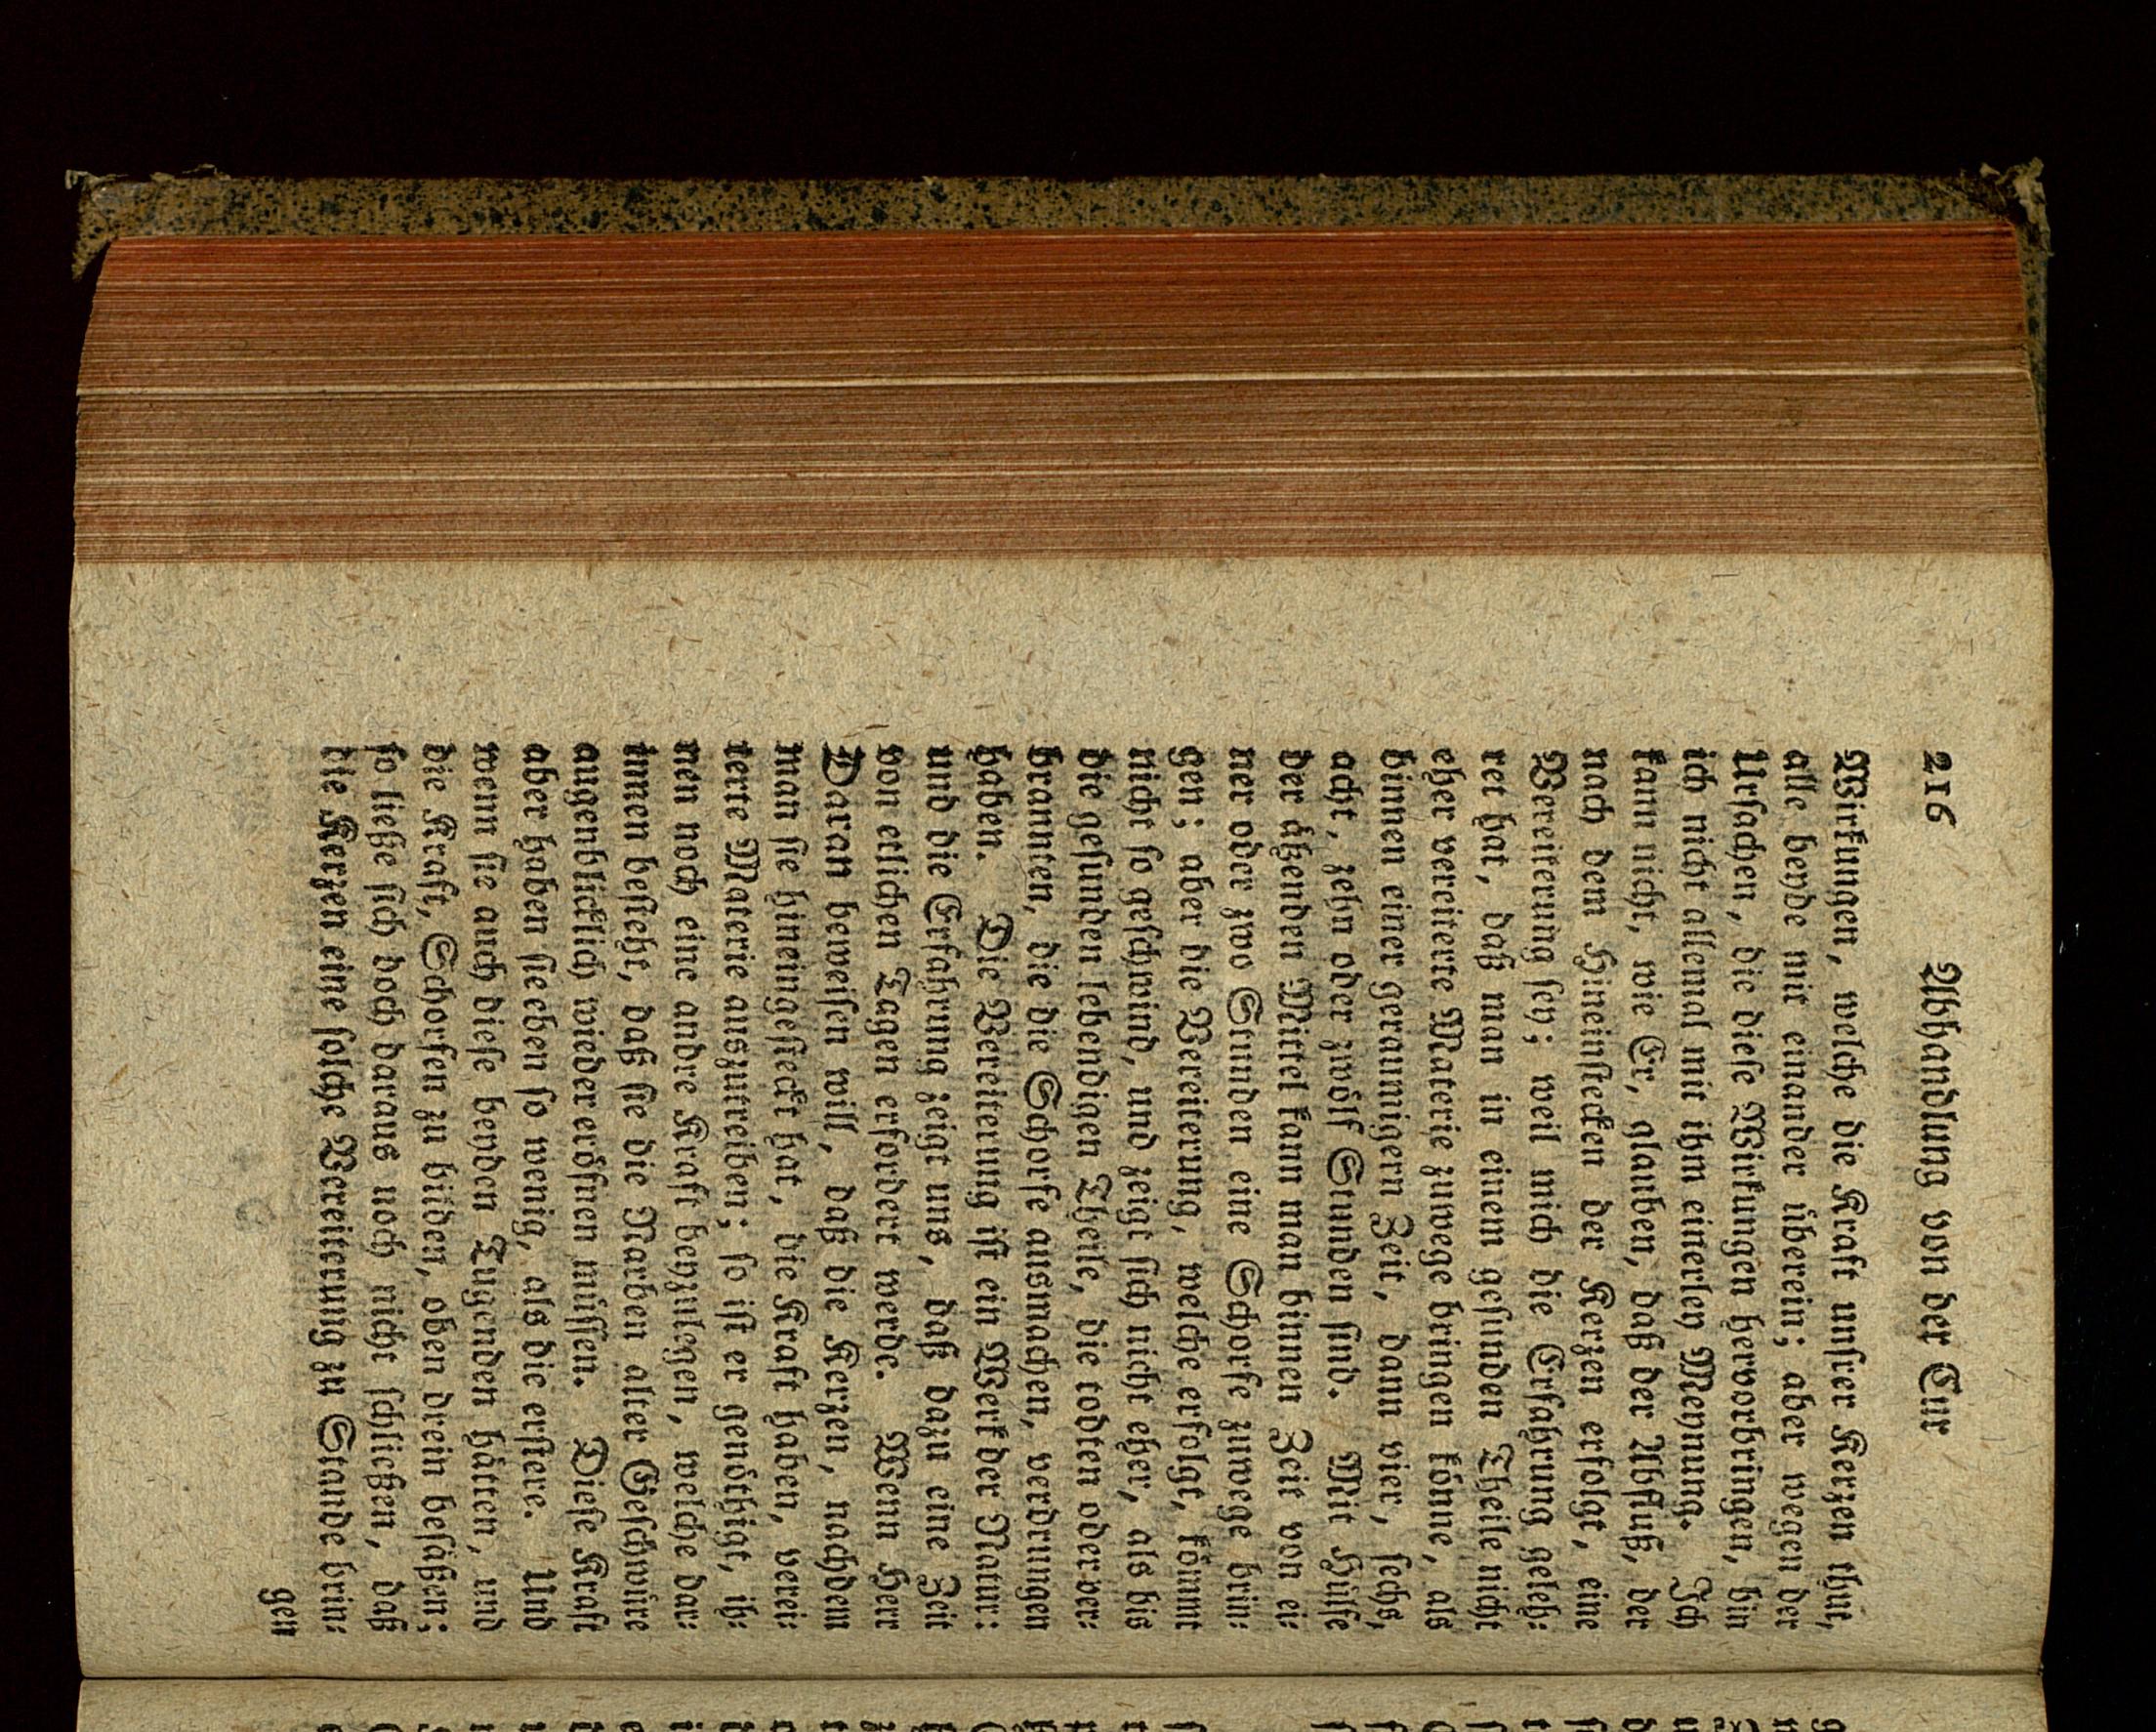 216 Abhandlung von der Cur
Wirkungen, welche die Kraft unsrer Kerzen thut,
alle beyde mit einander überein; aber wegen der
Ursachen, die diese Wirkungen hervorbringen, bin
ich nicht allemal mit ihm einerley Meynung. Ich
kann nicht, wie Er, glauben, daß der Abfluß, der
nach dem Hineinstecken der Kerzen erfolgt, eine
Vereiterung sey; weil mich die Erfahrung geleh-
ret hat, daß man in einem gesunden Theile nicht
eher vereiterte Materie zuwege bringen könne, als
binnen einer geraumigern Zeit, dann vier, sechs,
acht, zehn oder zwölf Stunden sind. Mit Hülfe
der ätzenden Mittel kann man binnen Zeit von ei-
ner oder zwo Stunden eine Schorfe zuwege brin-
gen; aber die Vereiterung, welche erfolgt, kömmt
nicht so geschwind, und zeigt sich nicht eher, als bis
die gesunden lebendigen Theile, die todten oder ver-
brannten, die die Schorfe ausmachen, verdrungen
haben. Die Vereiterung ist ein Werk der Natur:
und die Erfahrung zeigt uns, daß dazu eine Zeit
von etlichen Tagen erfordert werde. Wenn Herr
Daran beweisen will, daß die Kerzen, nachdem
man sie hineingesteckt hat, die Kraft haben, verei-
terte Materie auszutreiben; so ist er genöthigt, ih-
nen noch eine andre Kraft beyzulegen, welche dar-
innen besteht, daß sie die Narben alter Geschwüre
augenblicklich wieder eröfnen müssen. Diese Kraft
aber haben sie eben so wenig, als die erstere. Und
wenn sie auch diese beyden Tugenden hätten, und
die Kraft, Schorfen zu bilden, oben drein besäßen;
so ließe sich doch daraus noch nicht schließen, daß
die Kerzen eine solche Vereiterung zu Stande brin-
gen